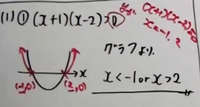 (1) ① (x+1)(x-2)>0
y=(x+1)(x-2)=0
x=-1, 2
グラフより
(-1,0) (2,0) x
x<-1 or x>2